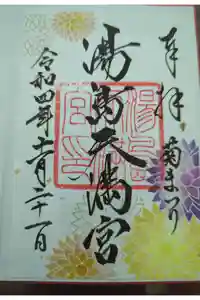 奉拝
菊まつり
湯島天満宮
令和四年十一月二十一日